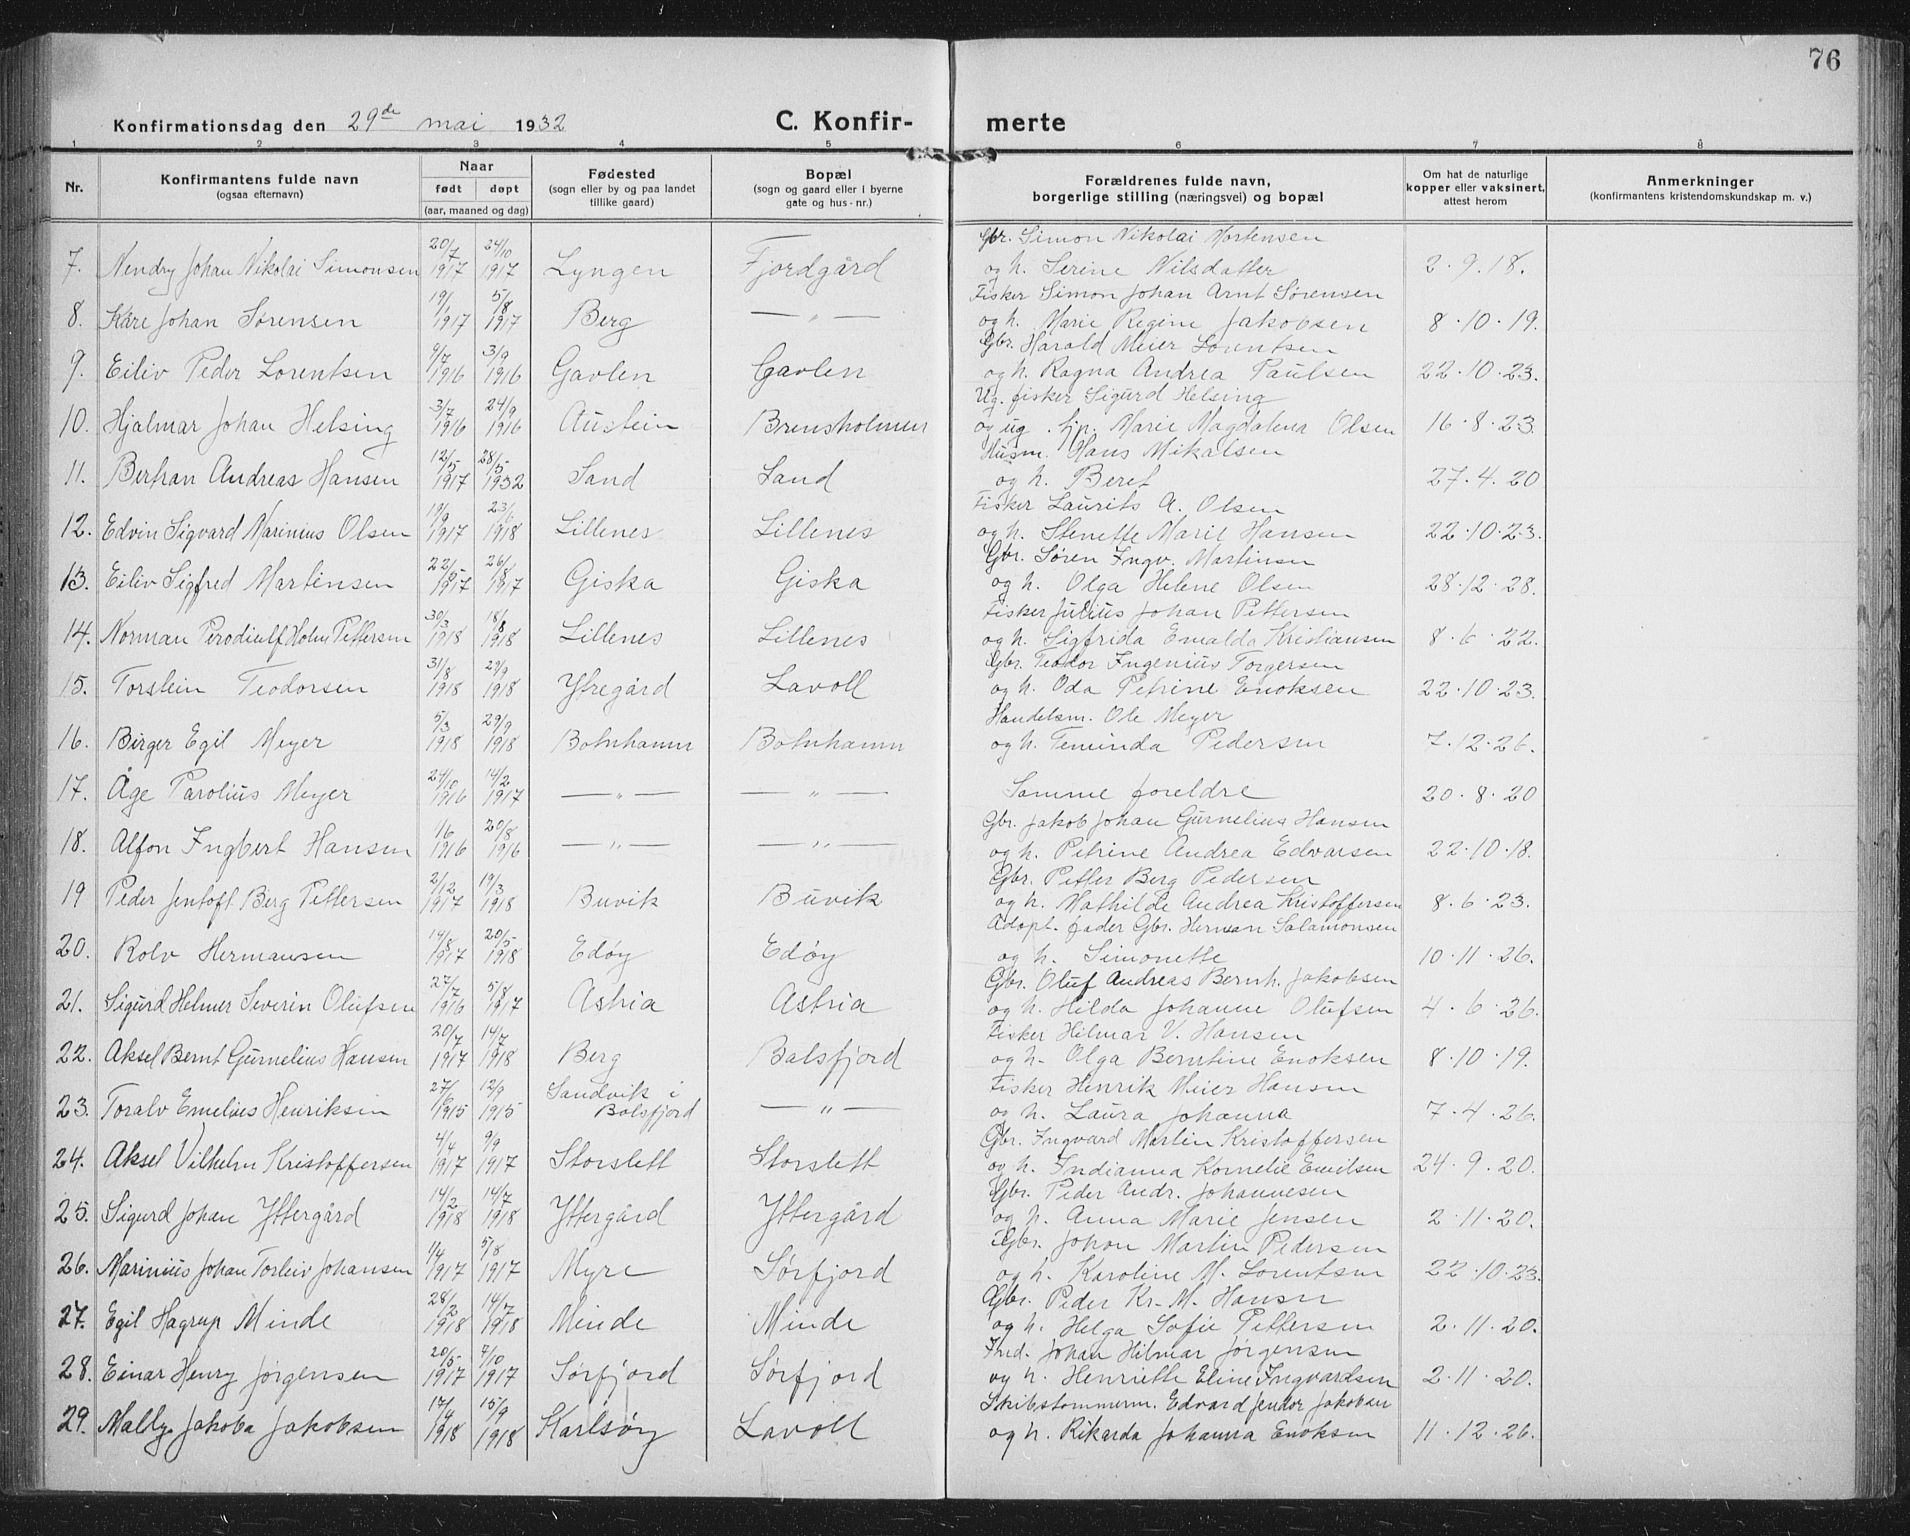 76
Konfirmationsdag den 29de mai 1932 C. Konfir- merte
1 2 3 4 5 6 7 8
Nr. Konfirmantens fulde navn (ogsaa efternavn) Naar født døpt (aar, maaned og dag) Fødested (sogn eller by og paa landet tillike gaard) Bopæl (sogn og gaard eller i byerne gate og hus-nr.) Forældrenes fulde navn, borgerlige stilling (næringsvei) og bopæl Om hat de naturlige kopper eller vaksinert, attest herom Anmerkninger (konfirmantens kristendomskundskap m. v.)
20/7 24/10 Gbr. Simon Nikolai Mortensen
7. Nendry Johan Nikolai Simonsen 1917 1917 Lyngen Fjordgård og h. Serine Nilsdatter 2.9.18.
19/1 5/8 Fisker Simon Johan Arnt Sørensen
8. Kåre Johan Sørensen 1917 1917 Berg — " — og h. Marie Regine Jakobsen 8.10.19.
9/7 3/9 Gbr. Harald Meier Lorentsen
9. Eiliv Peder Lorentsen 1916 1916 Gavlen Gavlen og h. Ragna Andrea Paulsen 22.10.23.
3/7 24/9 Ug. fisker Sigurd Helsing
10. Hjalmar Johan Helsing 1916 1916 Austein Brensholmen og ug. Marie Magdalena Olsen 16.8.23.
12/5 28/5 Husm. Hans Mikalsen
11. Bertran Andreas Hansen 1917 1932 Sand Sand og h. Beret 27.4.20
19/9 23/1 Fisker Laurits A. Olsen
12. Edvin Sigvard Marinius Olsen 1917 1918 Lillenes Lillenes og h. Stenette Marie Hansen 22.10.23.
22/5 26/8 Gbr. Søren Ingv. Martinsen
13. Eiliv Sigfred Martinsen 1917 1917 Giska Giska og h. Olga Helene Olsen 28.12.28.
30/3 18/8 Fisker Julius Johan Pettersen
14. Norman Holm Pettersen 1918 1918 Lillenes Lillenes og h. Sigfrida Emalda Kristiansen 8.6.22.
31/8 29/9 Gbr. Teodor Ingenius Torgersen
15. Torstein Teodorsen 1918 1918 Ytregård Lavoll og h. Oda Petrine Enoksen 22.10.23.
5/3 29/9 Handelsm. Ole Meyer
16. Birger Egil Meyer 1918 1918 Botnhamn Botnhamn og h. Teminda Pedersen 7.12.26.
24/10 14/2
17. Åge Parolius Meyer 1916 1917 — " — — " — Samme foreldre 20.8.20
1/6 20/8 Gbr. Jakob Johan Gurnelius Hansen
18. Alfon Ingbert Hansen 1916 1916 — " — — " — og h. Petrine Andrea Edvarsen 22.10.18.
2/12 19/3 Gbr. Petter Berg Pedersen
19 Peder Jentoft Berg Pettersen 1917 1918 Buvik Buvik og h. Mathilde Andrea Kristoffersen 8.6.23.
14/8 20/5 Adopt. fader Gbr. Herman Salamonsen
20. Rolv Hermansen 1917 1918 Edøy Edøy og h. Simonette 10.11.26.
27/7 5/8 Gbr. Oluf Andreas Bernh. Jakobsen
21. Sigurd Helmer Severin Olufsen 1916 1917 Astria Astria og h. Hilda Johanne Olufsen 4.6.26.
20/7 14/7 Fisker Hilmar V. Hansen
22. Aksel Bernt Gurnelius Hansen 1917 1918 Berg Balsfjord og h. Olga Berntine Enoksen 8.10.19.
27/6 12/9 Sandvik i Fisker Henrik Meier Hansen
23. Toralv Emelius Henriksen 1915 1915 Balsfjord — " — og h. Laura Johanna 7.4.26.
4/4 9/9 Gbr. Ingvard Martin Kristoffersen
24. Aksel Vilhelm Kristoffersen 1917 1917 Storslett Storslett og h. Indianna Kornelie Emilsen 24.9.20.
14/2 14/7 Gbr. Peder Andr. Johannesen
25. Sigurd Johan Yttergård 1918 1918 Yttergård Yttergård og h. Anna Marie Jensen 2.11.20.
1/4 5/8 Gbr. Johan Martin Pedersen
26. Marinius Johan Torleiv Johansen 1917 1917 Myre Sørfjord og h. Karoline M. Lorentsen 22.10.23.
28/2 14/7 Gbr. Peder Kr. M. Hansen
27. Egil Hagrup Minde 1918 1918 Minde Minde og h. Helga Sofie Pettersen 2.11.20.
20/5 7/10 Johan Hilmar Jørgensen
28. Einar Henry Jørgensen 1917 1917 Sørfjord Sørfjord og h. Henriette Eline Ingvardsen 2.11.20.
17/4 15/9 Skibstømmerm. Edvard Jakobsen
29. Mally Jakoba Jakobsen 1918 1918 Karlsøy Lavoll og h. Rikarda Johanna Enoksen 11.12.26.